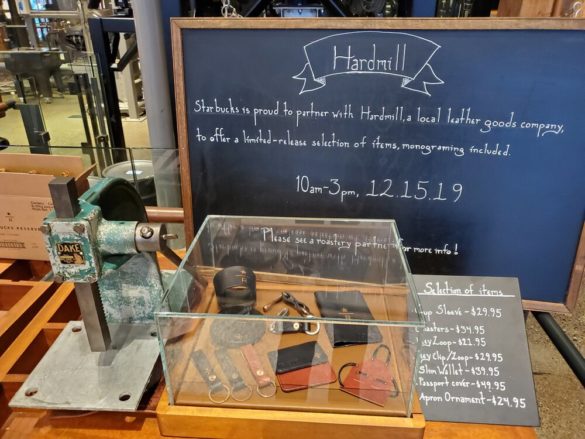 Hardmill
Starbucks is proud to partner with Hardmill, a local leather goods company,
to offer a limited-release selection of items, monograming included.
10am-3pm, 12.15.19
Please see a roastery partner for more info!
DAKE
Selection of items
up Sleeve-$29.95
asters-$34.95
Zoop-$21.95
Clip/Zoop-$29.95
Slim Wallet-$39.95
Passport cover-$49.95
Apron Ornament-$24.95